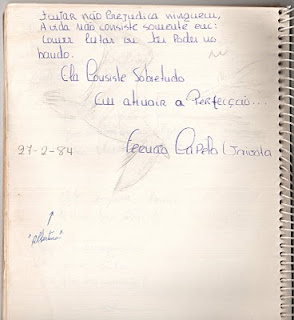 Tentar não Prejudica ninguem,
A vida não consiste somente em:
Comer lutar ou ter Poder no
bando.
Ela Consiste Sobretudo
Em atingir a Perfeição...
27-2-84
Fernão Capelo